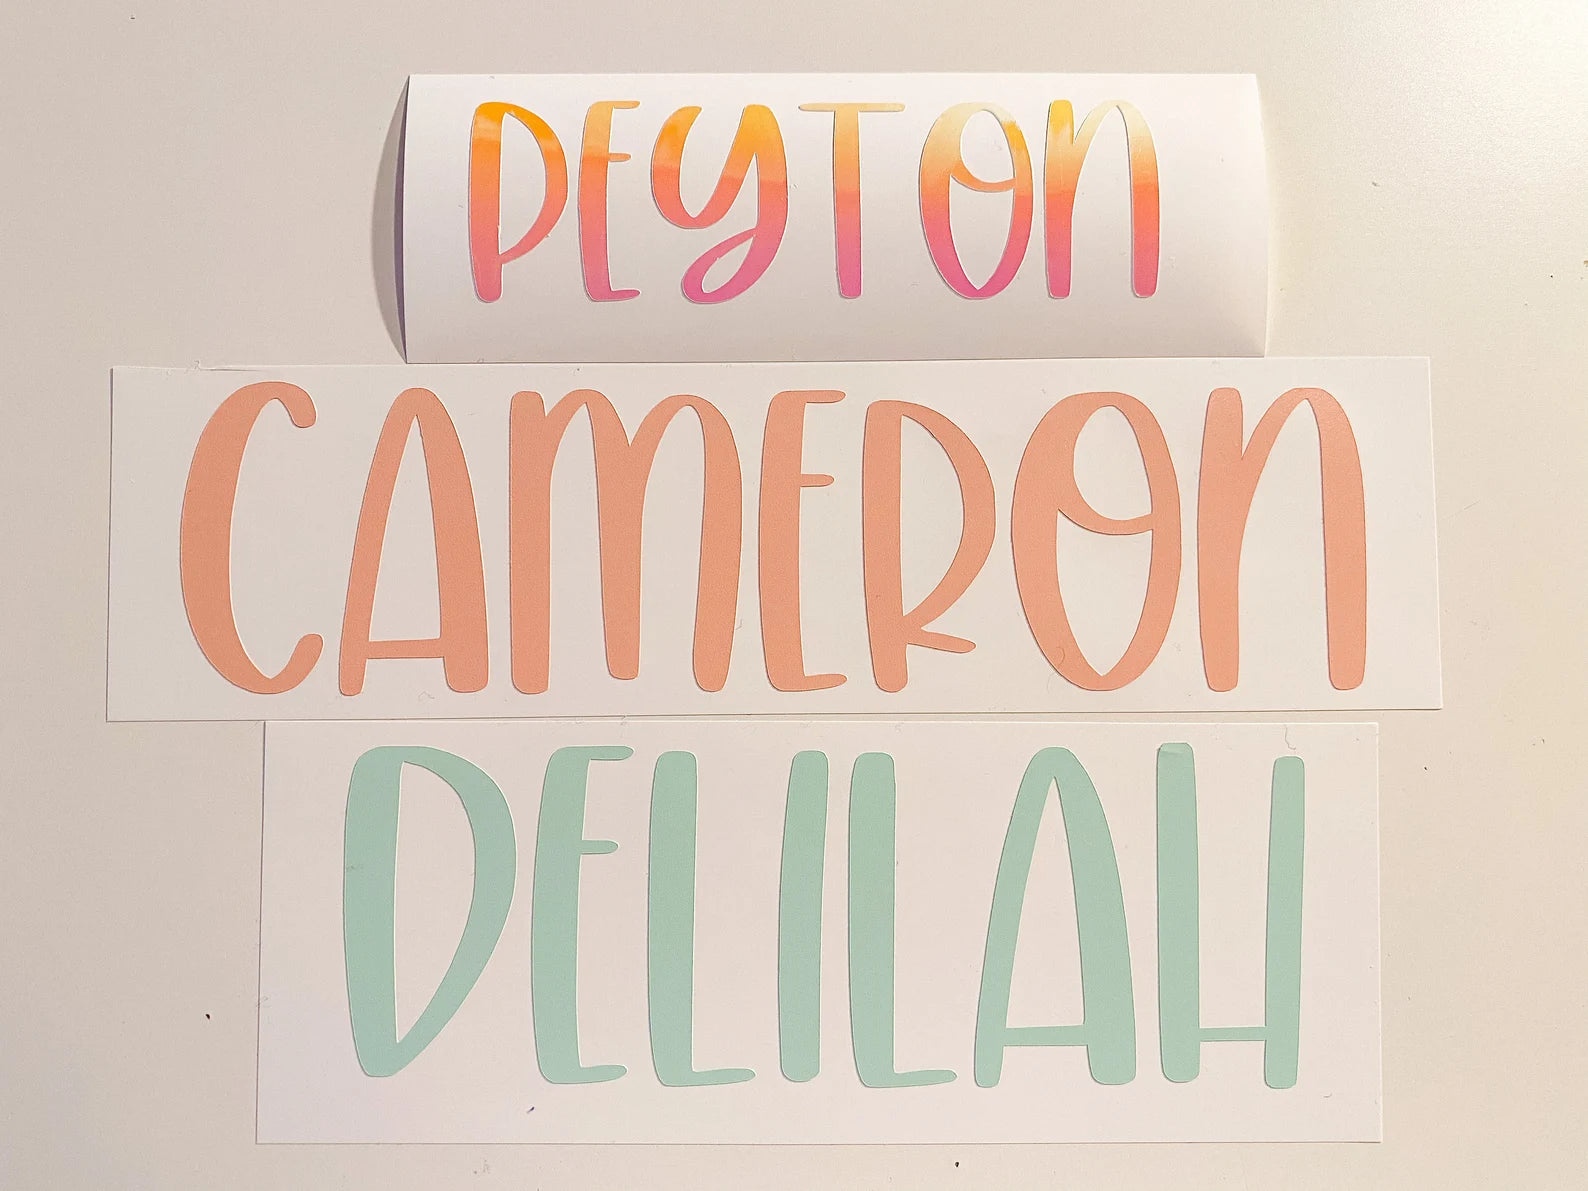 PEYTON
CAMERON
DELILAH